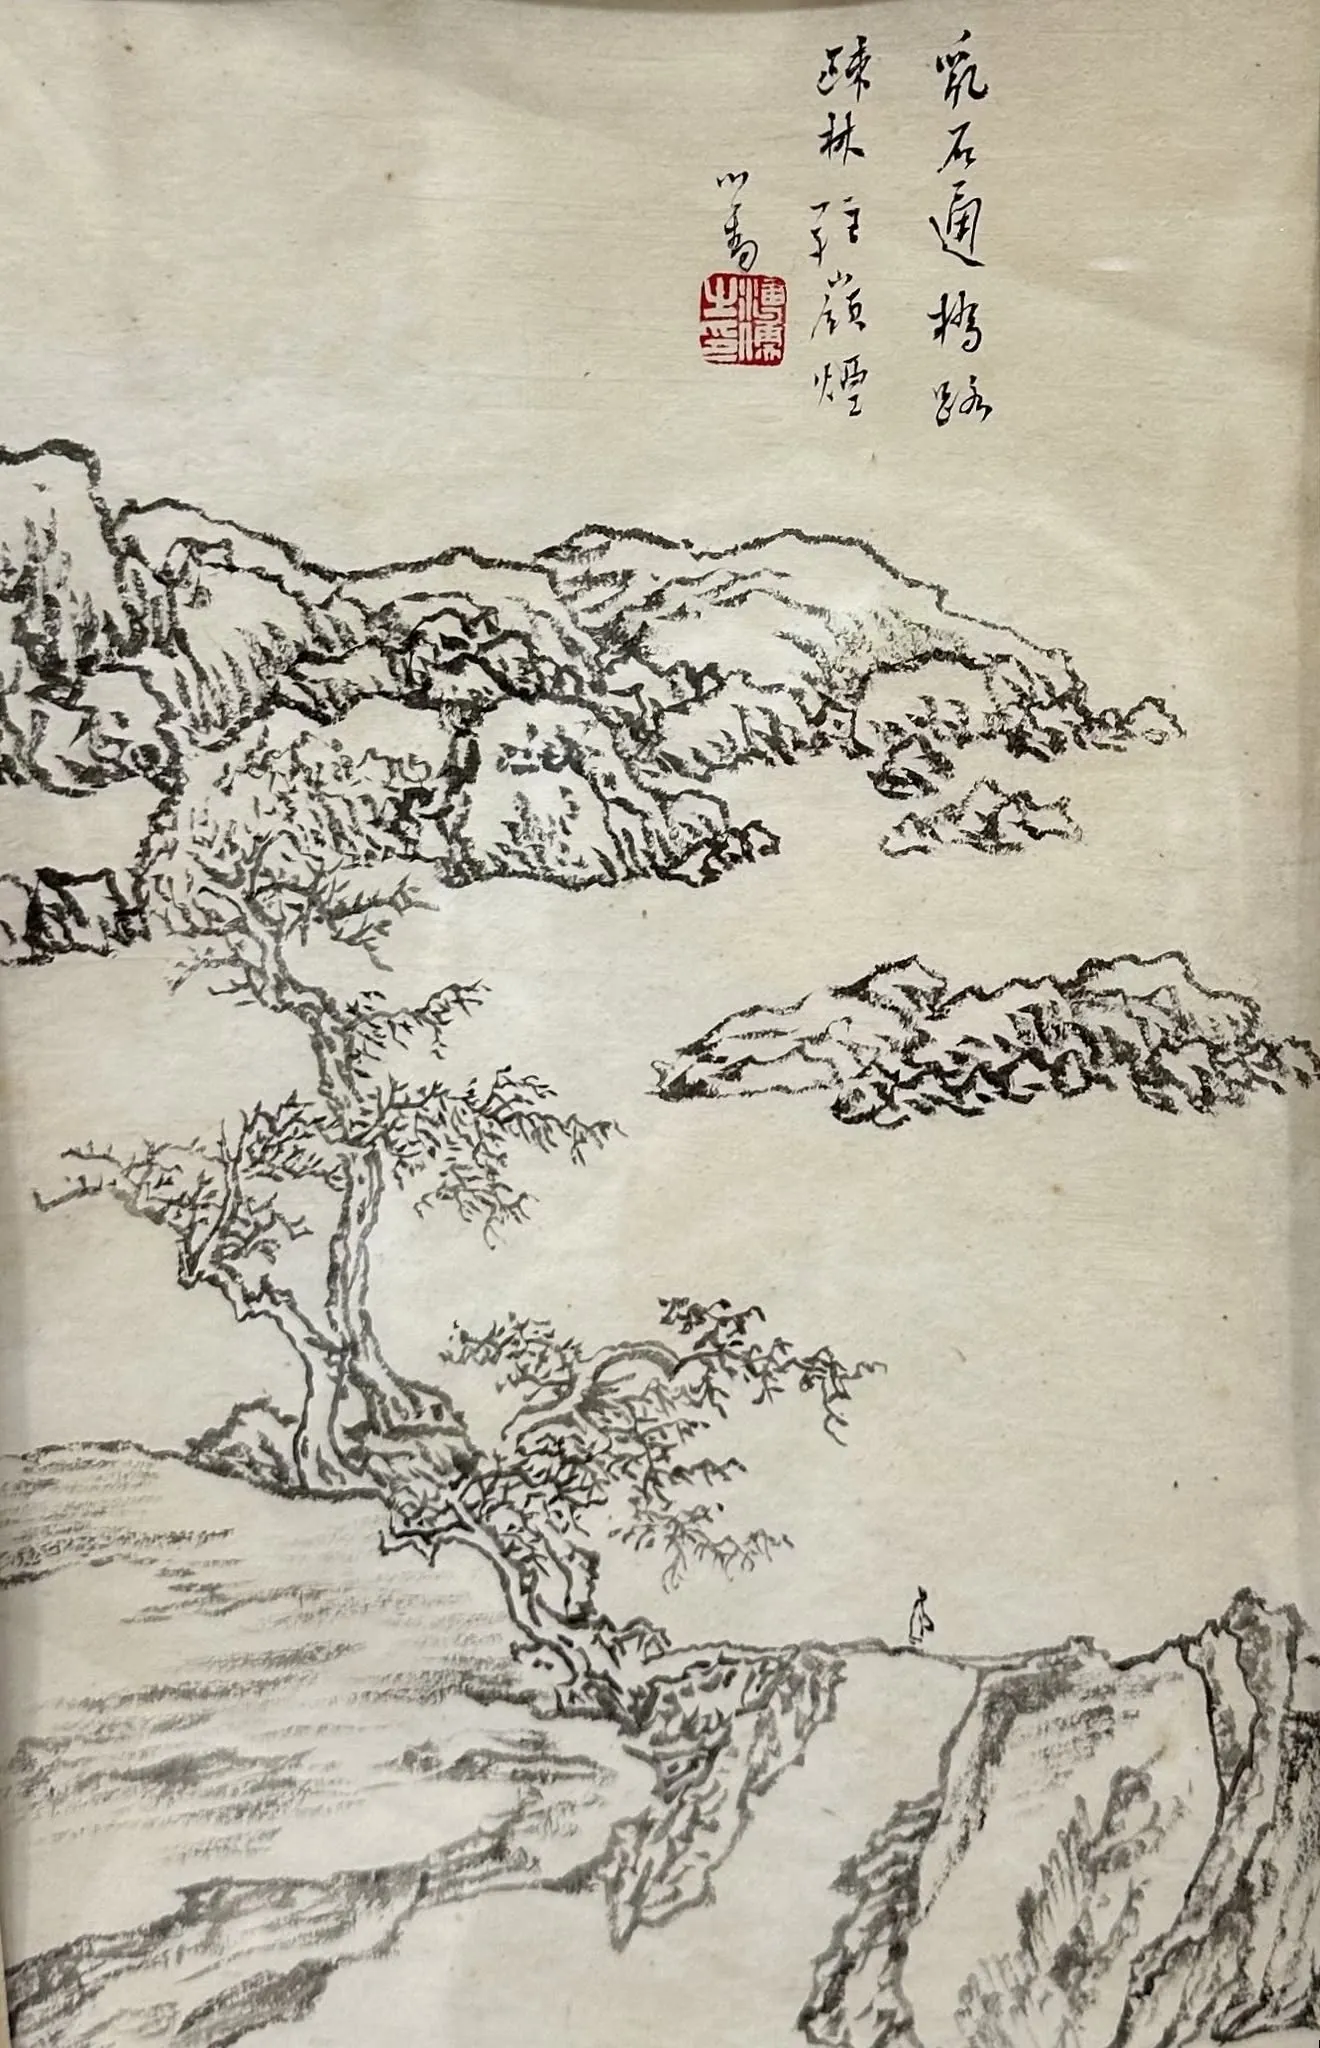 亂石通橋路
踈林駐嶺煙
心畬
溥儒之印